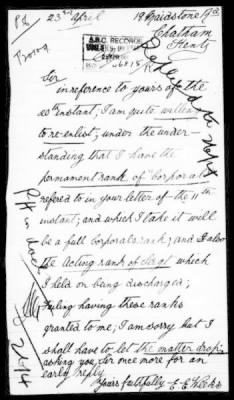 23rd April
19 Maidstone Rd
Chatham
Kent
Sir
in reference to yours of the
20th instant, I am quite willing
to re-enlist, under the under
standing that I have the
permanent rank of Corporal
refered to in your letter of the 11th
instant; and which I take it will
be a full corporals rank; and I also
the acting rank of Sergt which
I held on being discharged;
Failing having these ranks
granted to me, I am sorry but I
shall have to let the matter drop;
asking you for once more for an
early reply
Yours faithfully E. E.